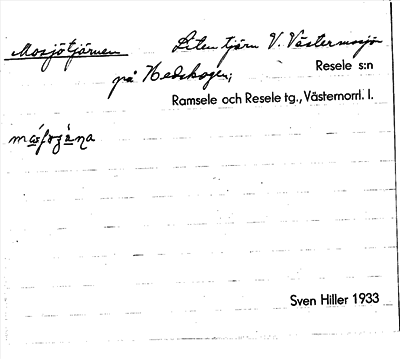 Mosjötjärnen Liten tjärn V. Västermosjö
på Hedskogen; Resele s:n
Ramsele och Resele tg., Västernorrl. l.
Sven Hiller 1933